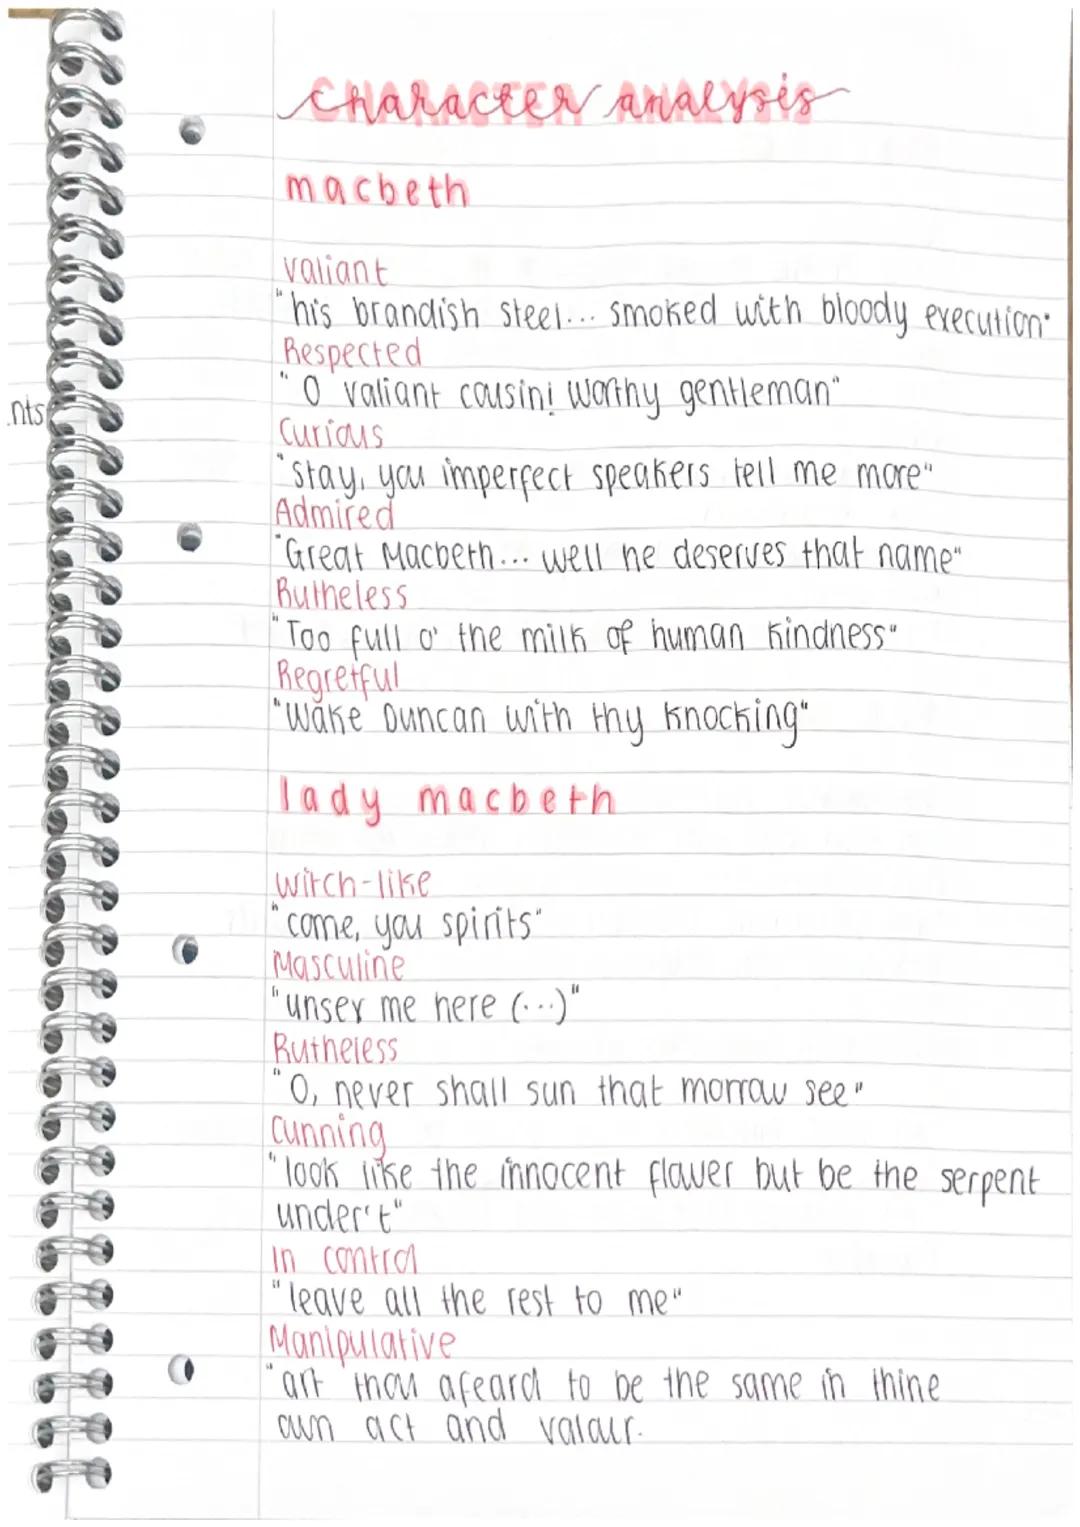 CHARACTER ANALYSIS
character analysis
macbeth
valiant
"his brandish steel... smoked with bloody execution"
Respected
"O valiant cousin! Worthy gentleman"
Curious
"Stay, you imperfect speakers tell me more"
Admired
"Great Macbeth... well he deserves that name"
Rutheless
"Too full o' the milk of human kindness"
Regretful
"Wake Duncan with thy knocking"
lady macbeth
witch-like
"come, you spirits"
Masculine
"unsex me here (...)"
Rutheless
"O, never shall sun that morrow see"
Cunning
"look like the innocent flower but be the serpent
under't"
In control
"leave all the rest to me"
Manipulative
"art thou afeard to be the same in thine
own act and valour.
nts